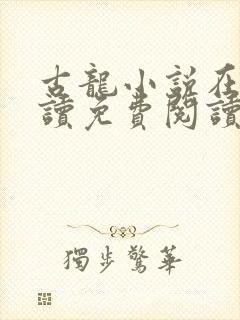 古龍小說在
讀免費閱讀
獨步驚華